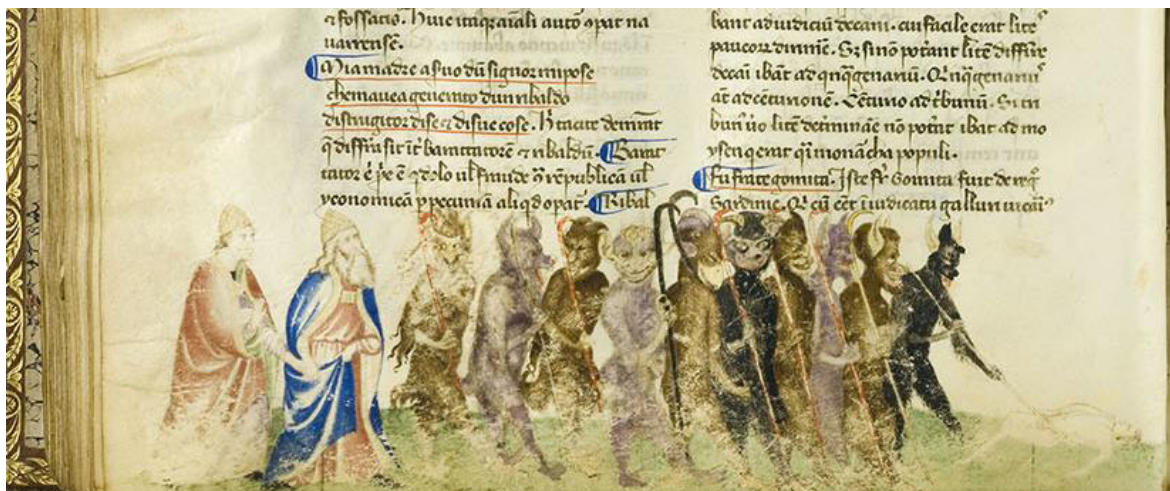 & fossatis. Huic itaqꝫ auali auto opat na
uarrense.
Mia madre a suo dũ signor mpose
che mauea generato dun ribaldo
distrugitor di se & di sue cose. h̄ tacite demr̃at
q̃ diffr̃a sit ĩt barattatorẽ & ribaldũ. Barat
tator ẽ
yconomicã p pecuniã aliqd opat᷑. Ribal
bant ad iudiciũ decani. cui facile erat lite᷒
paucoꝝ dirimẽ. Si si nõ pot̃ant litẽ diffir̃e
decãi ibãt ad qnq̃genariũ. Qnq̃genariu᷒
at̃ ad cẽturionẽ. Cẽturio ad tbunũ. Si tri
bun᷒ ũo litẽ det̃minãe nõ pot̃at ibat ad mo
ysen q̃ erat q̃i monarcha populi.
fu frate gomita. Iste fr̃ Gomita fuit de req̃
Sardinie. Q̃ cũ eẽt ĩ iudicatu gallur̃